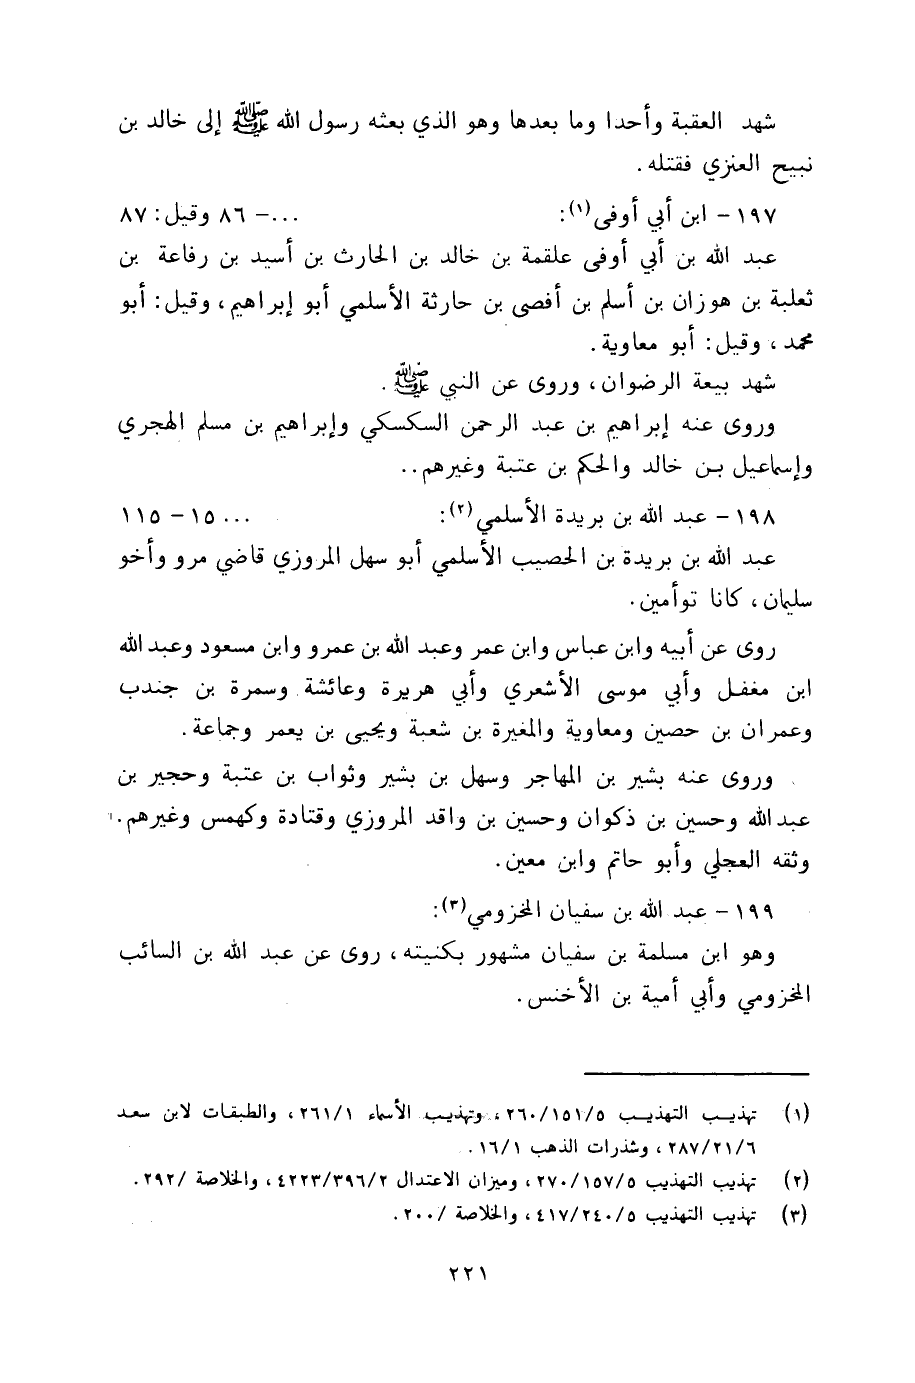 شهد العقبة وأحدا وما بعدها وهو الذي بعثه رسول الله ﷺ إلى خالد بن
نبيح العنزي فقتله.
١٩٧ - ابن أبي أوفى(١): ...- ٨٦ وقيل: ٨٧
عبد الله بن أبي أوفى علقمة بن خالد بن الحارث بن أسيد بن رفاعة بن
ثعلبة بن هوزان بن أسلم بن أفصى بن حارثة الأسلمي أبو إبراهيم، وقيل: أبو
محمد، وقيل: أبو معاوية.
شهد بيعة الرضوان، وروى عن النبي ﷺ.
وروى عنه إبراهيم بن عبد الرحمن السكسكي وإبراهيم بن مسلم الهجري
وإسماعيل بن خالد والحكم بن عتبة وغيرهم..
١٩٨ - عبد الله بن بريدة الأسلمي(٢): ... ١٥ - ١١٥
عبد الله بن بريدة بن الحصيب الأسلمي أبو سهل المروزي قاضي مرو وأخو
سليمان، كانا توأمين.
روى عن أبيه وابن عباس وابن عمر وعبد الله بن عمرو وابن مسعود وعبد الله
ابن مغفل وأبي موسى الأشعري وأبي هريرة وعائشة وسمرة بن جندب
وعمران بن حصين ومعاوية والمغيرة بن شعبة ويحيى بن يعمر وجماعة.
وروى عنه بشير بن المهاجر وسهل بن بشير وثواب بن عتبة وحجير بن
عبد الله وحسين بن ذكوان وحسين بن واقد المروزي وقتادة وكهمس وغيرهم.
وثقه العجلي وأبو حاتم وابن معين.
١٩٩ - عبد الله بن سفيان المخزومي(٣):
وهو ابن مسلمة بن سفيان مشهور بكنيته، روى عن عبد الله بن السائب
المخزومي وأبي أمية بن الأخنس.
(١) تهذيب التهذيب ٢٦٠/١٥١/٥، وتهذيب الأسماء ٢٦١/١، والطبقات لابن سعد
٢٨٧/٢١/٦، وشذرات الذهب ١٦/١.
(٢) تهذيب التهذيب ٢٧٠/١٥٧/٥، وميزان الاعتدال ٤٢٢٣/٣٩٦/٢، والخلاصة /٢٩٢.
(٣) تهذيب التهذيب ٤١٧/٢٤٠/٥، والخلاصة /٢٠٠.
٢٢١